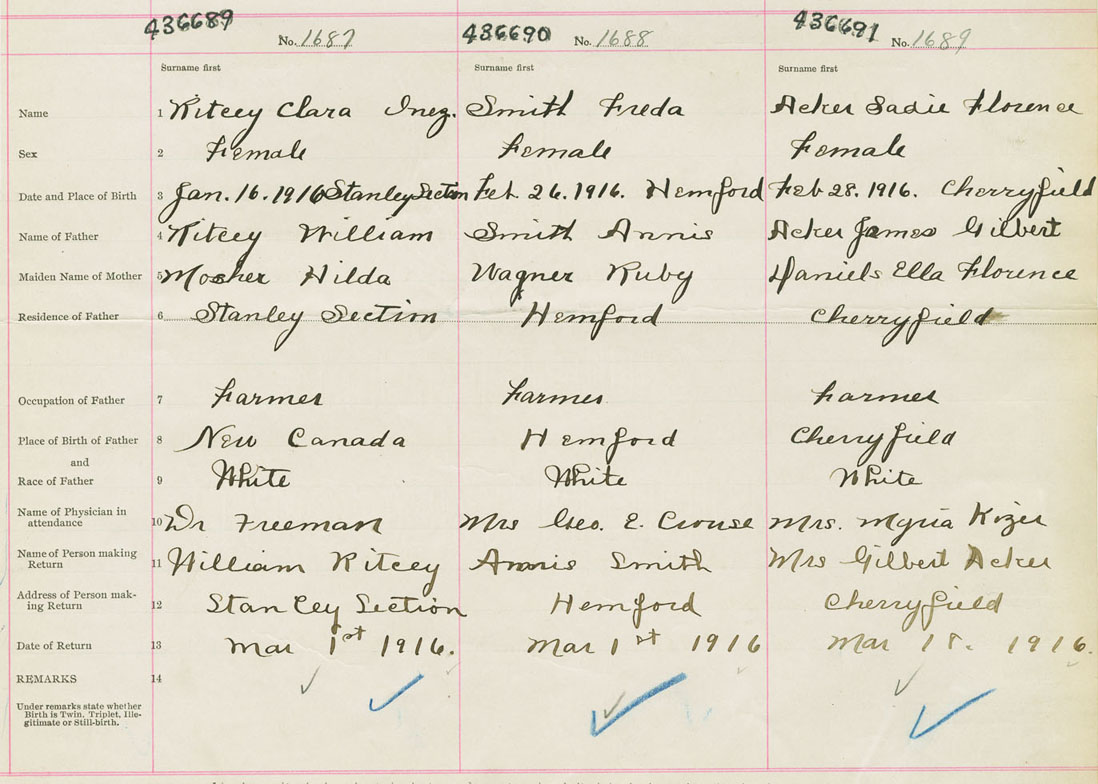 436689 No. 1687 436690 No. 1688 436691 No. 1689
Surname first Surname first Surname first
Name 1 Ritcey Clara Inez. Smith Freda Acker Sadie Florence
Sex 2 Female Female Female
Date and Place of Birth 3 Jan. 16. 1916 Stanley Section Feb. 26. 1916. Hemford Feb 28. 1916. Cherryfield
Name of Father 4 Ritcey William Smith Annis Acker James Gilbert
Maiden Name of Mother 5 Mosher Hilda Wagner Ruby Daniels Ella Florence
Residence of Father 6 Stanley Section Hemford Cherryfield
Occupation of Father 7 Farmer Farmer Farmer
Place of Birth of Father 8 New Canada Hemford Cherryfield
and
Race of Father 9 White White White
Name of Physician in
attendance 10 Dr Freeman Mrs Geo. E. Crouse Mrs.
Name of Person making
Return 11 William Ritcey Annis Smith Mrs Gilbert Acker
Address of Person mak-
ing Return 12 Stanley Section Hemford Cherryfield
Date of Return 13 Mar 1st 1916. Mar 1st 1916 Mar 18. 1916.
REMARKS 14
Under remarks state whether
Birth is Twin, Triplet, Ille-
gitimate or Still-birth.